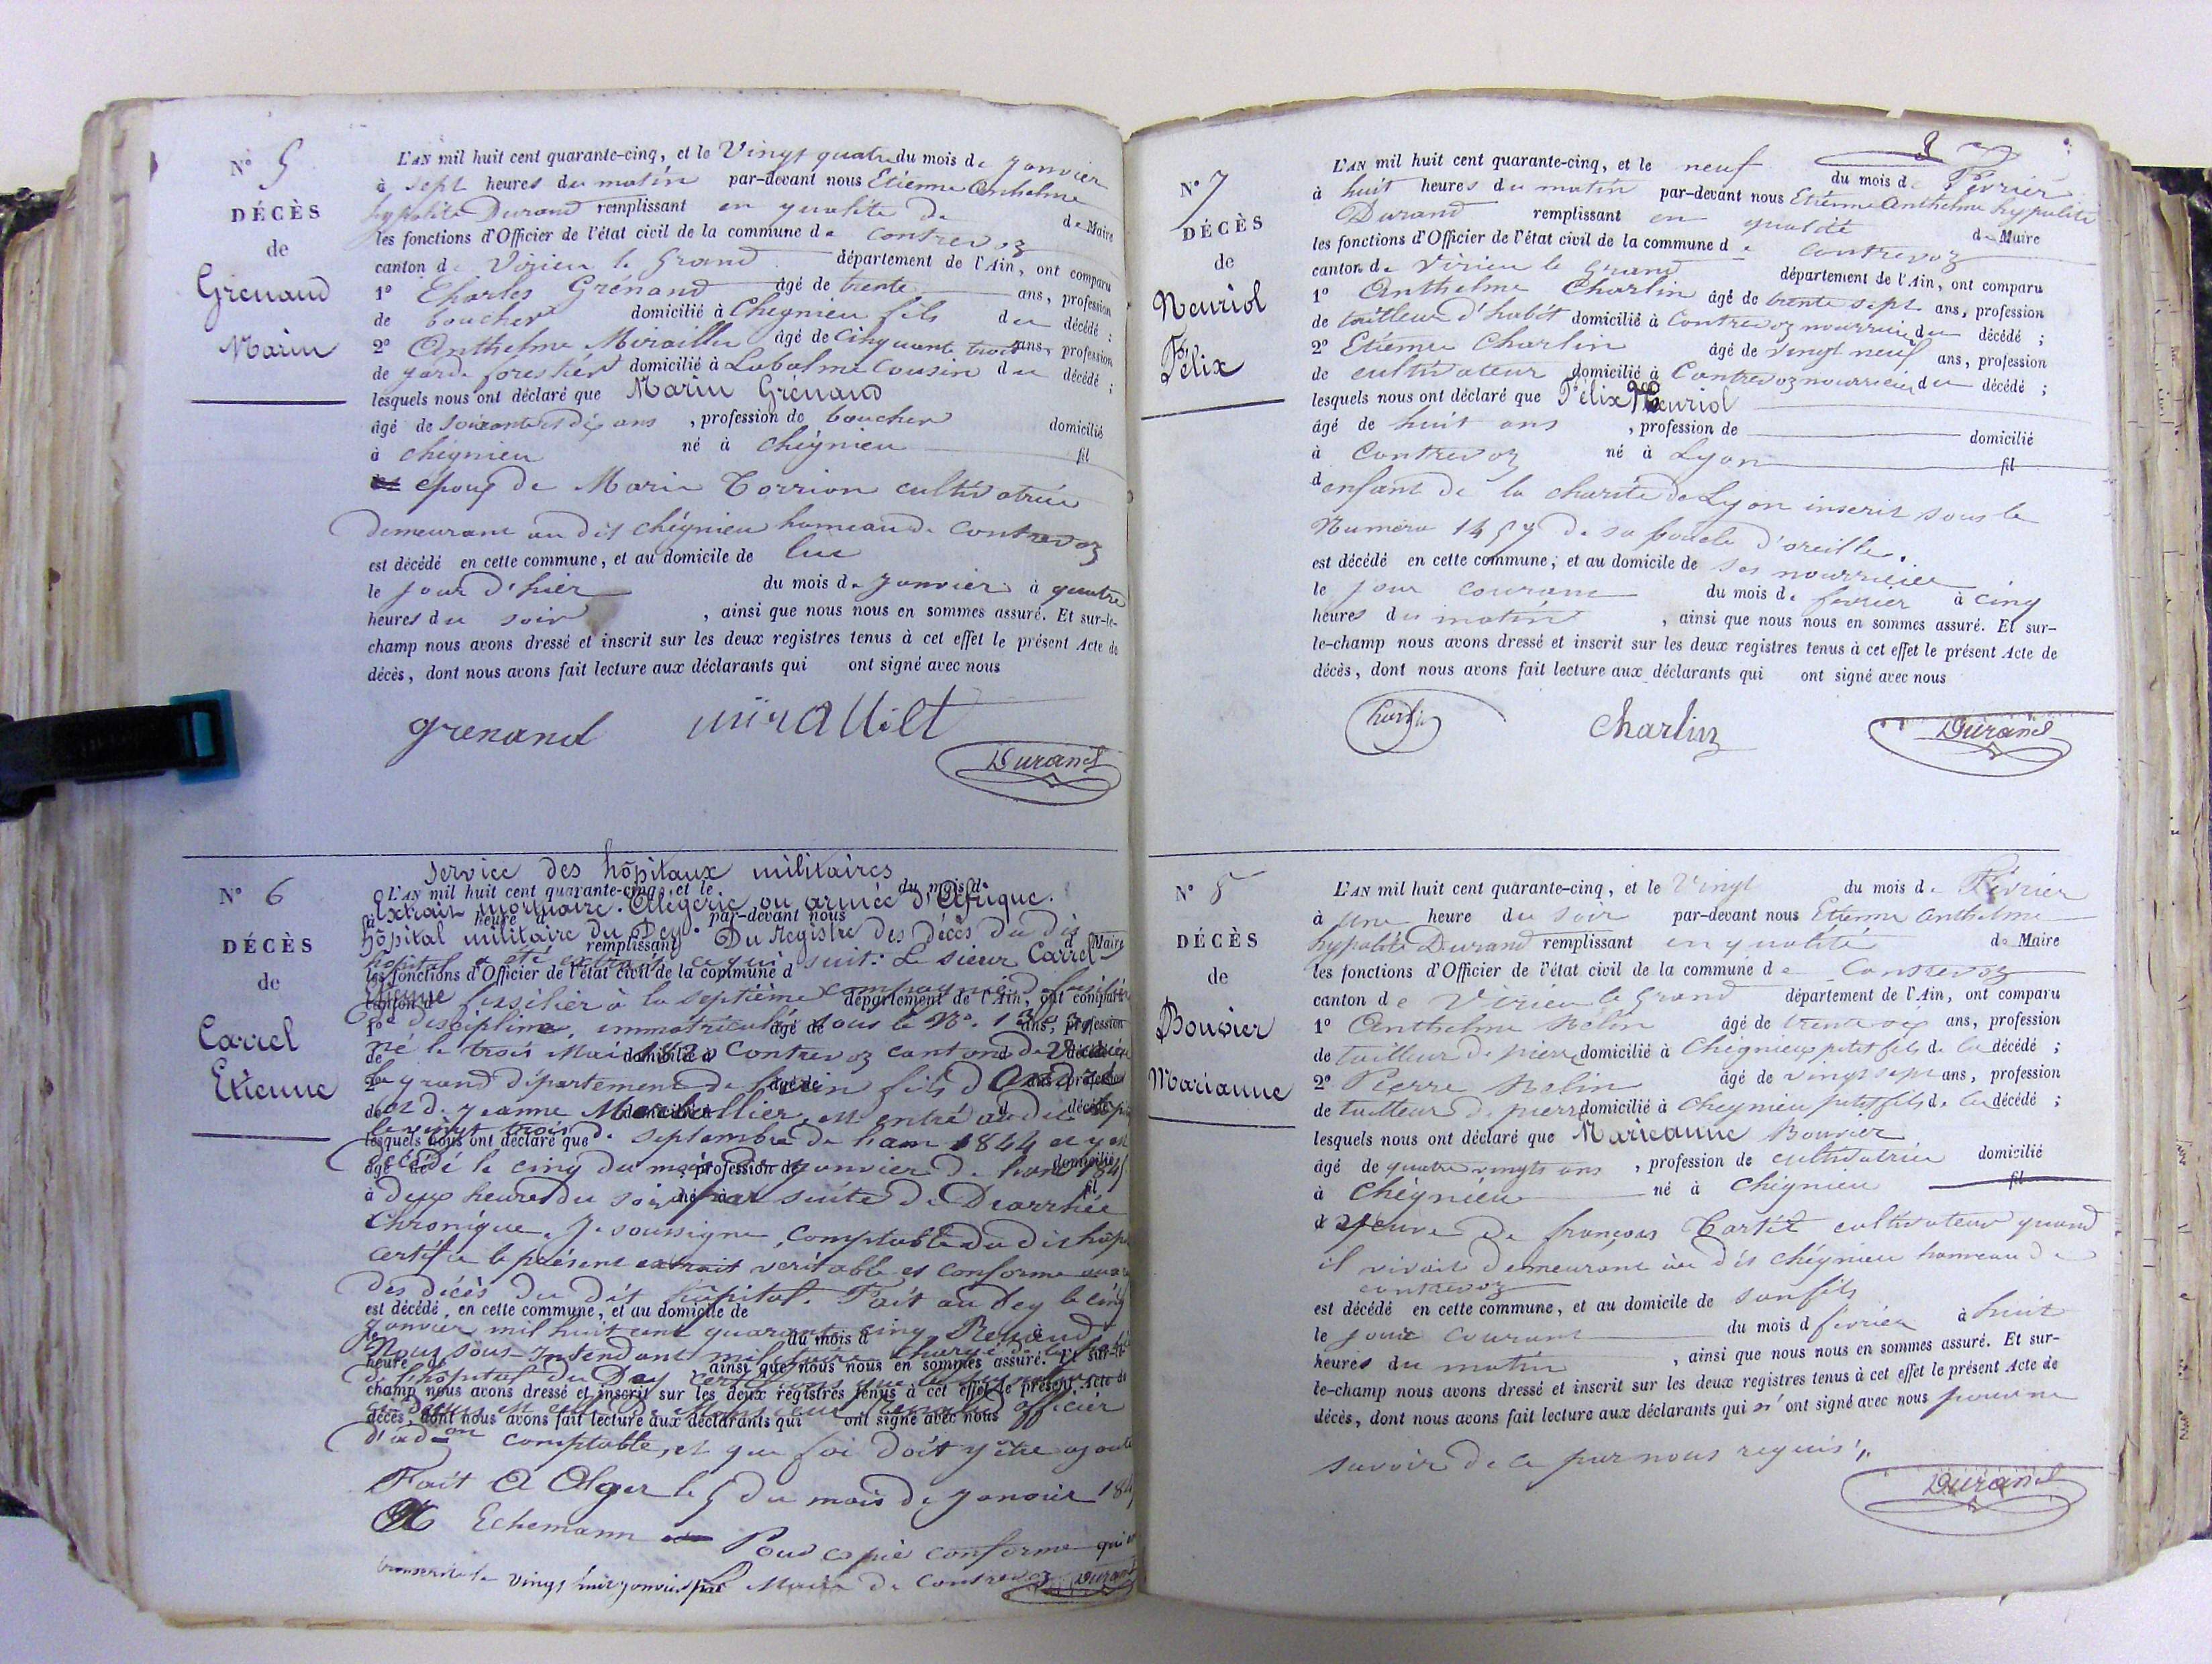 N° 5
DÉCÈS
de
Grenaud
Marin
L'AN mil huit cent quarante-cinq, et le Vingt quatre du mois de janvier
à sept heures du matin par-devant nous Etienne Anthelme
hypolite Durand remplissant en qualité de de Maire
les fonctions d'Officier de l'état civil de la commune de contrevoz
canton de Virieu le Grand département de l'Ain, ont comparu
1° Charles Grénand âgé de trente ans, profession
de boucher domicilié à Chegnieu fils du décédé ;
2° Anthelme Miraillet âgé de Cinquante trois ans, profession
de garde forestier domicilié à Labalme Cousin du décédé ;
lesquels nous ont déclaré que Marin Grénaud
âgé de soixante et dix ans , profession de boucher domicilié
à chégnieu né à chégnieu fil
epoux de Marie Torrion cultivatrice
demeurant au dit chégnieu hameau de Contrevoz
est décédé en cette commune, et au domicile de lui
le jour d'hier du mois de janvier à quatre
heures du soir , ainsi que nous nous en sommes assuré. Et sur-le-
champ nous avons dressé et inscrit sur les deux registres tenus à cet effet le présent Acte de
décès, dont nous avons fait lecture aux déclarants qui ont signé avec nous
grenand mirallilt
Durand
N° 6
DÉCÈS
de
Carrel
Etienne
Service des hôpitaux militaires
L'AN mil huit cent quarante-cinq, et le du mois d
Extrait mortuaire. Algérie ou armée d'Afrique.
à heure d par-devant nous
hôpital militaire du Dey. Du Registre des décès du dit
remplissant d Maire
hôpital a été extrait ce qui suit: Le sieur Carrel
les fonctions d'Officier de l'état civil de la commune d
Etienne fusilier à la septième compagnie de fusiliers
canton d département de l'Ain, ont comparu
de discipline, immatriculé sous le N°.
1° âgé de ans, profession
né le trois Mai Contrevoz canton de Virieu
de domicilié à d décédé
le grand département de l'ain fils d'André
2° âgé de ans, profession
et de jeanne est entré au dit
de domicilié à d décédé
le vingt trois de septembre de l'an 1844 et y est
lesquels nous ont déclaré que
décédé le cinq du mois de janvier de l'an 1845
âgé de , profession de domicilié
à deux heures du soir par suite de Diarrhée
à né à fil
Chronique. Je soussigne, comptable du dit
certifie le présent extrait veritable et conforme
des décès du dit hôpital. Fait au Dey le cinq
est décédé en cette commune, et au domicile de
janvier mil huit cent quarante cinq Renaud
le du mois d
Nous sous-Intendant militaire chargé de la
heure de ainsi que nous nous en sommes assuré. Et sur-le-
de l'hôpital du Dey certifions que la
champ nous avons dressé et inscrit sur les deux registres tenus à cet effet le présent Acte de
ci-dessus est celle de Monsieur Renaud officier
décès, dont nous avons fait lecture aux déclarants qui ont signé avec nous
d'ad-on comptable, et que foi doit y être
Fait A Alger le 5 du mois de janvier
Echemann Pour copie conforme
transcrite le vingt huit janvier par Maire de Contrevoz Durand
3 7
N° 7
DÉCÈS
de
Neuriol
Félix
L'AN mil huit cent quarante-cinq, et le neuf du mois de Février
à huit heures du matin par-devant nous Etienne Anthelme hypolite
Durand remplissant en qualité de Maire
les fonctions d'Officier de l'état civil de la commune de Contrevoz
canton de Virieu le Grand département de l'Ain, ont comparu
1° Anthelme Charlin âgé de trente sept ans, profession
de tailleur d'habit domicilié à Contrevoz nourricier du décédé ;
2° Etienne Charlin âgé de vingt neuf ans, profession
de cultivateur domicilié à Contrevoz nourricier du décédé ;
lesquels nous ont déclaré que Félix Neuriol
âgé de huit ans , profession de domicilié
à Contrevoz né à Lyon fil
d enfant de la charité de Lyon inscrit sous le
Numero 1457 de sa boucle d'oreille.
est décédé en cette commune; et au domicile de ses nourricier
le jour courant du mois de fevrier à cinq
heures du matin , ainsi que nous nous en sommes assuré. Et sur-
le-champ nous avons dressé et inscrit sur les deux registres tenus à cet effet le présent Acte de
décès, dont nous avons fait lecture aux déclarants qui ont signé avec nous
Charlin Charlin Durand
N° 8
DÉCÈS
de
Bouvier
Marianne
L'AN mil huit cent quarante-cinq, et le Vingt du mois de Février
à une heure du soir par-devant nous Etienne Anthelme
hypolite Durand remplissant en qualité de Maire
les fonctions d'Officier de l'état civil de la commune de Contrevoz
canton de Virieu le Grand département de l'Ain, ont comparu
1° Anthelme Belin âgé de trente six ans, profession
de tailleur de pierre domicilié à Chégnieu petit fils de la décédé ;
2° Pierre Belin âgé de vingt sept ans, profession
de tailleur de pierre domicilié à Chegnieu petit fils de la décédé ;
lesquels nous ont déclaré que Marieanne Bouvier
âgé de quatre vingts ans , profession de cultivatrice domicilié
à Chégnieu né à Chégnieu fil
Veuve de françois Tartit cultivateur quand
il vivait demeurant au dit chégnieu hameau de
contrevoz
est décédé en cette commune, et au domicile de son fils
le jour courant du mois d février à huit
heures du matin , ainsi que nous nous en sommes assuré. Et sur-
le-champ nous avons dressé et inscrit sur les deux registres tenus à cet effet le présent Acte de
décès, dont nous avons fait lecture aux déclarants qui n'ont signé avec nous pour ne
savoir de ce par nous requis.
Durand